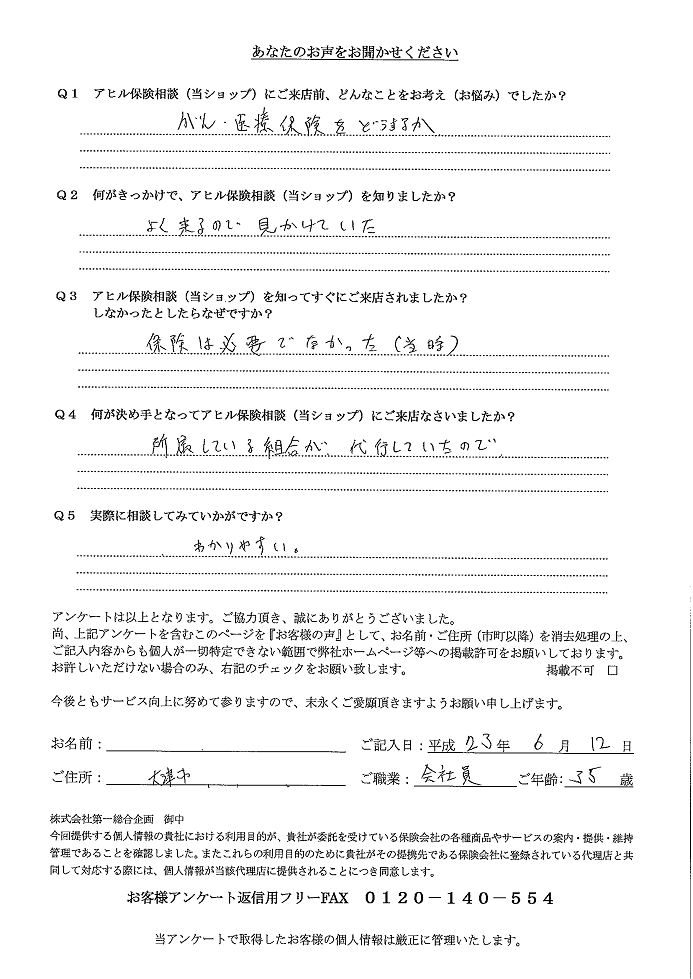 あなたのお声をお聞かせください
Q1 アヒル保険相談（当ショップ）にご来店前、どんなことをお考え（お悩み）でしたか？
がん・医療保険をどうするか
Q2 何がきっかけで、アヒル保険相談（当ショップ）を知りましたか？
よく来るので見かけていた
Q3 アヒル保険相談（当ショップ）を知ってすぐにご来店されましたか？
しなかったとしたらなぜですか？
保険は必要でなかった（当時）
Q4 何が決め手となってアヒル保険相談（当ショップ）にご来店なさいましたか？
所属している組合が、代行していたので、
Q5 実際に相談してみていかがですか？
わかりやすい。
アンケートは以上となります。ご協力頂き、誠にありがとうございました。
尚、上記アンケートを含むこのページを『お客様の声』として、お名前・ご住所（市町以降）を消去処理の上、
ご記入内容からも個人が一切特定できない範囲で弊社ホームページ等への掲載許可をお願いしております。
お許しいただけない場合のみ、右記のチェックをお願い致します。 掲載不可 □
今後ともサービス向上に努めて参りますので、末永くご愛顧頂きますようお願い申し上げます。
お名前： ご記入日：平成 23 年 6 月 12 日
ご住所： 大津市 ご職業： 会社員 ご年齢： 35 歳
株式会社第一総合企画 御中
今回提供する個人情報の貴社における利用目的が、貴社が委託を受けている保険会社の各種商品やサービスの案内・提供・維持
管理であることを確認しました。またこれらの利用目的のために貴社がその提携先である保険会社に登録されている代理店と共
同して対応する際には、個人情報が当該代理店に提供されることにつき同意します。
お客様アンケート返信用フリーFAX 0120－140－554
当アンケートで取得したお客様の個人情報は厳正に管理いたします。